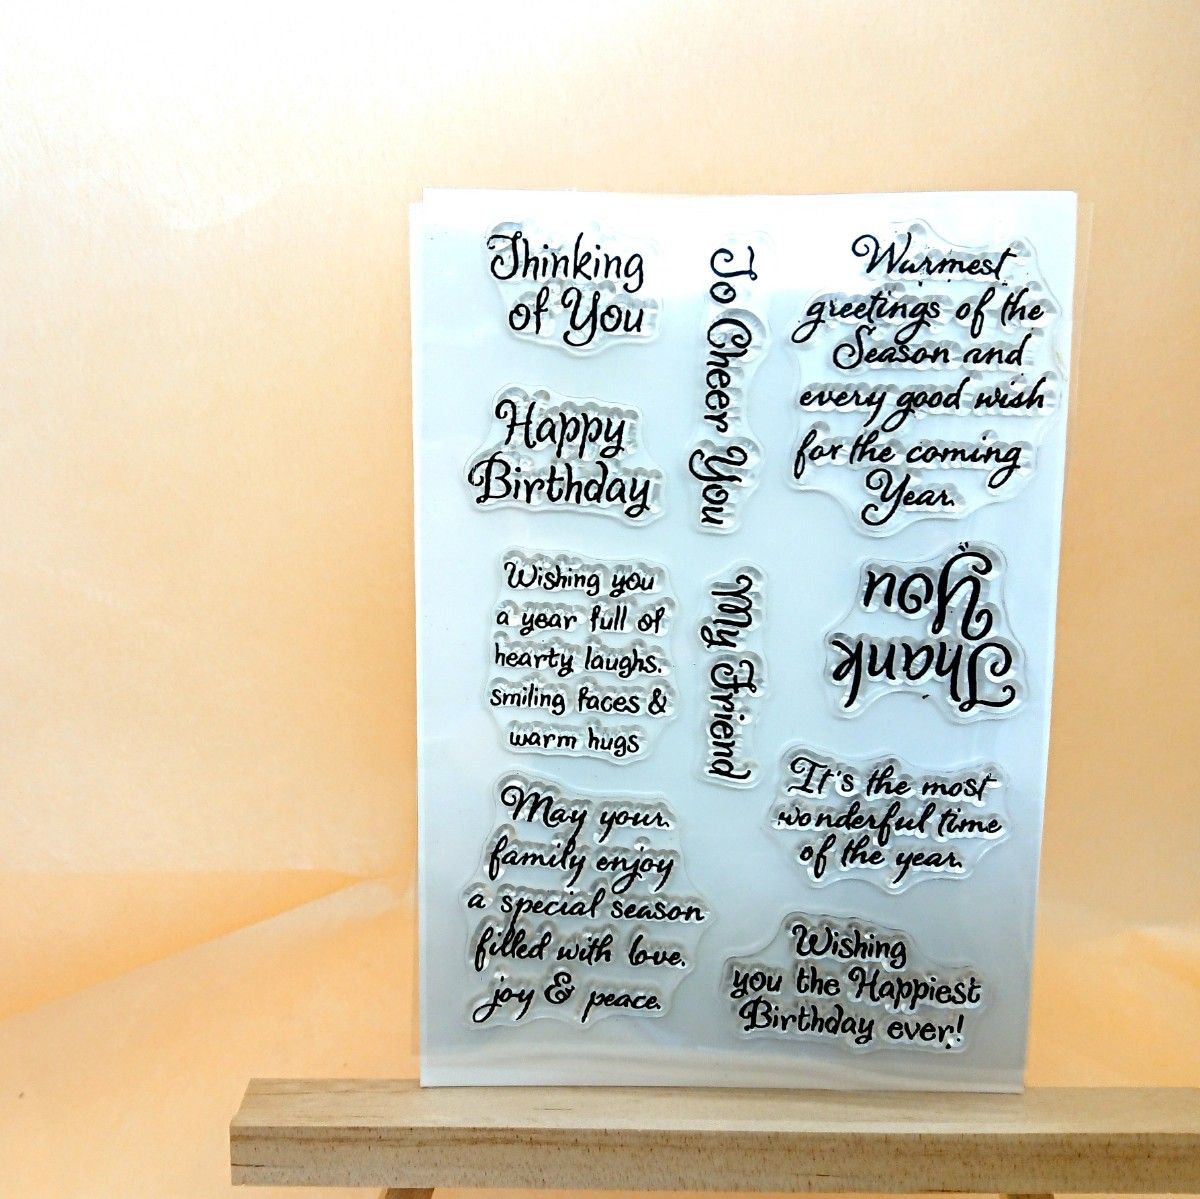 Thinking
of You
Happy
Birthday
Wishing you
a year full of
hearty laughs,
smiling faces &
warm hugs
May your
family enjoy
a special season
filled with love,
joy & peace.
To Cheer You
My Friend
Warmest
greetings of the
Season and
every good wish
for the coming
Year.
Thank
You
It's the most
wonderful time
of the year.
Wishing
you the Happiest
Birthday ever!